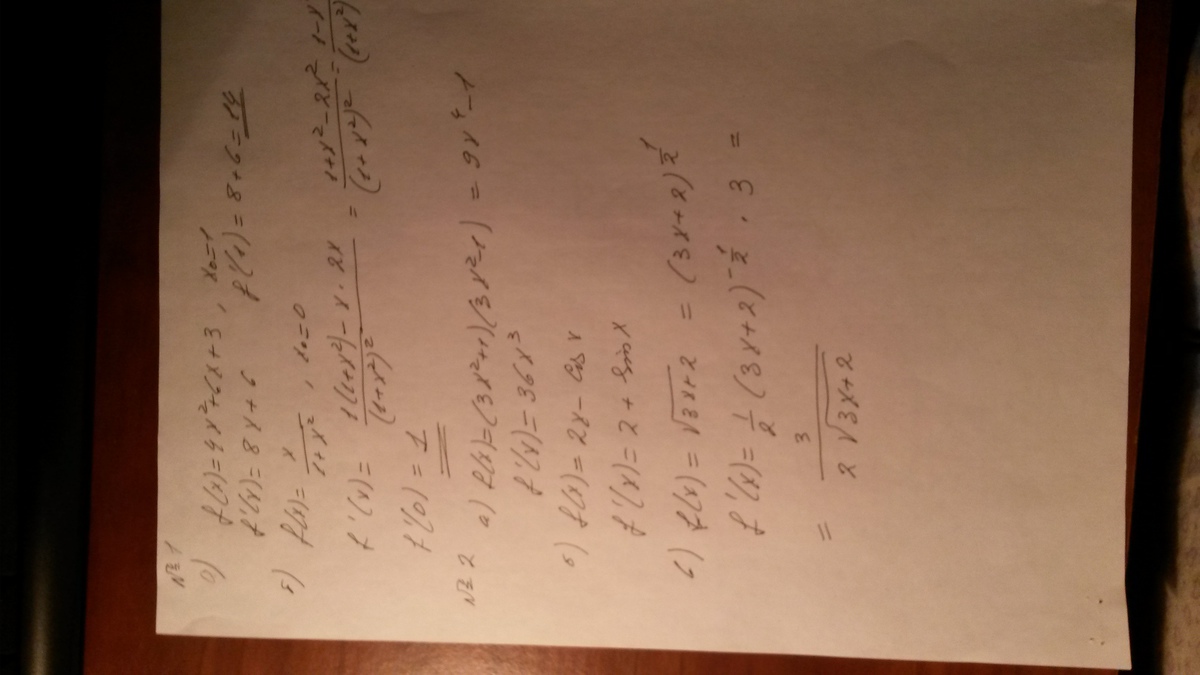 № 1
а) f(x) = 4x² + 6x + 3 , x₀ = 1
f'(x) = 8x + 6 f'(1) = 8 + 6 = 14
б) f(x) = x/(1+x²) , x₀ = 0
f'(x) = (1(1+x²) − x · 2x)/(1+x²)² = (1+x² − 2x²)/(1+x²)² = (1−x²)/(1+x²)
f'(0) = 1
№ 2 а) f(x) = (3x²+1)(3x²−1) = 9x⁴ − 1
f'(x) = 36x³
б) f(x) = 2x − cos x
f'(x) = 2 + sin x
в) f(x) = √(3x+2) = (3x+2)^(1/2)
f'(x) = 1/2 (3x+2)^(−1/2) · 3 =
= 3/(2√(3x+2))